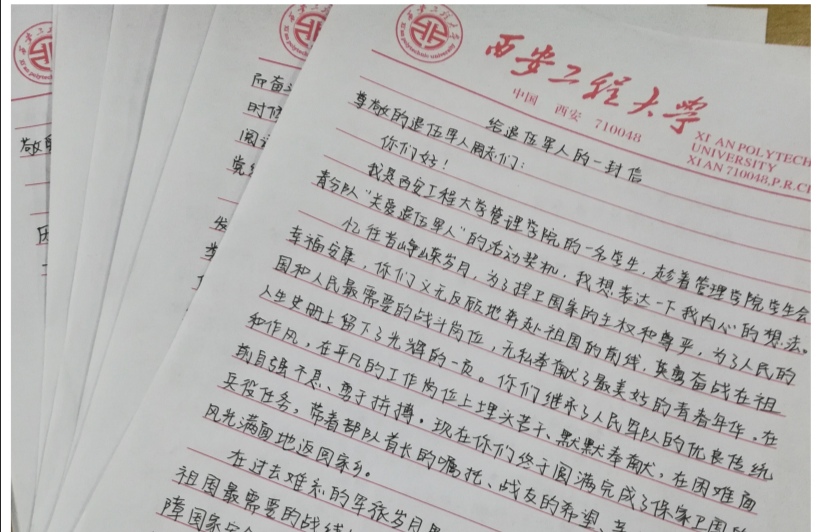 西安工程大学
中国 西安 710048
XI AN POLYTECH
UNIVERSITY
XI AN 710048,P.R.CH
给退伍军人的一封信
尊敬的退伍军人同志们：
你们好！
我是西安工程大学管理学院的一名学生，趁着管理学院学生会
青分队"关爱退伍军人"的活动契机，我想表达一下我内心的想法。
忆往昔峥嵘岁月，为了捍卫国家的主权和尊严，为了人民的
幸福安康，你们义无反顾地奔赴祖国的前线，英勇奋战在祖
国和人民最需要的战斗岗位，无私奉献了最美好的青春年华，在
人生史册上留下了光辉的一页。你们继承了人民军队的优良传统
和作风，在平凡的工作岗位上埋头苦干、默默奉献，在困难面
前自强不息、勇于拼搏。现在你们终于圆满完成了保家卫国
兵役任务，带着部队首长的嘱托、战友的希望
风光满面地返回家乡。
在过去难忘的军旅岁月里
祖国最需要的战线
障国家安全
即奋
时候
阅
党
发
敬
因